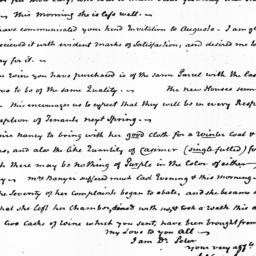 This morning she is less well —
have communicated your kind Invitation to Augusta. I am
received it with evident marks of Satisfaction, and desired me to
for it. —
wine you have purchased is of the same Parcel with the last
to be of the same Quality. — The new Houses seem
this encourages us to expect that they will be in every Resp
reception of Tenants next Spring. —
nancy to bring with her good Cloth for a Winter Coat &
and also the like Quantity of Casimer (single folled) for
there may be nothing of Purple in the color of either —
— Mrs Banyer suffered much last Evening & this Morning —
the Severity of her Complaints began to abate, and she became
that she left her Chamber, dined with us & took a walk this a
two Casks of Wine which you sent, have been brought from
My Love to you All —
I am Dr. Peter
Your very afft.